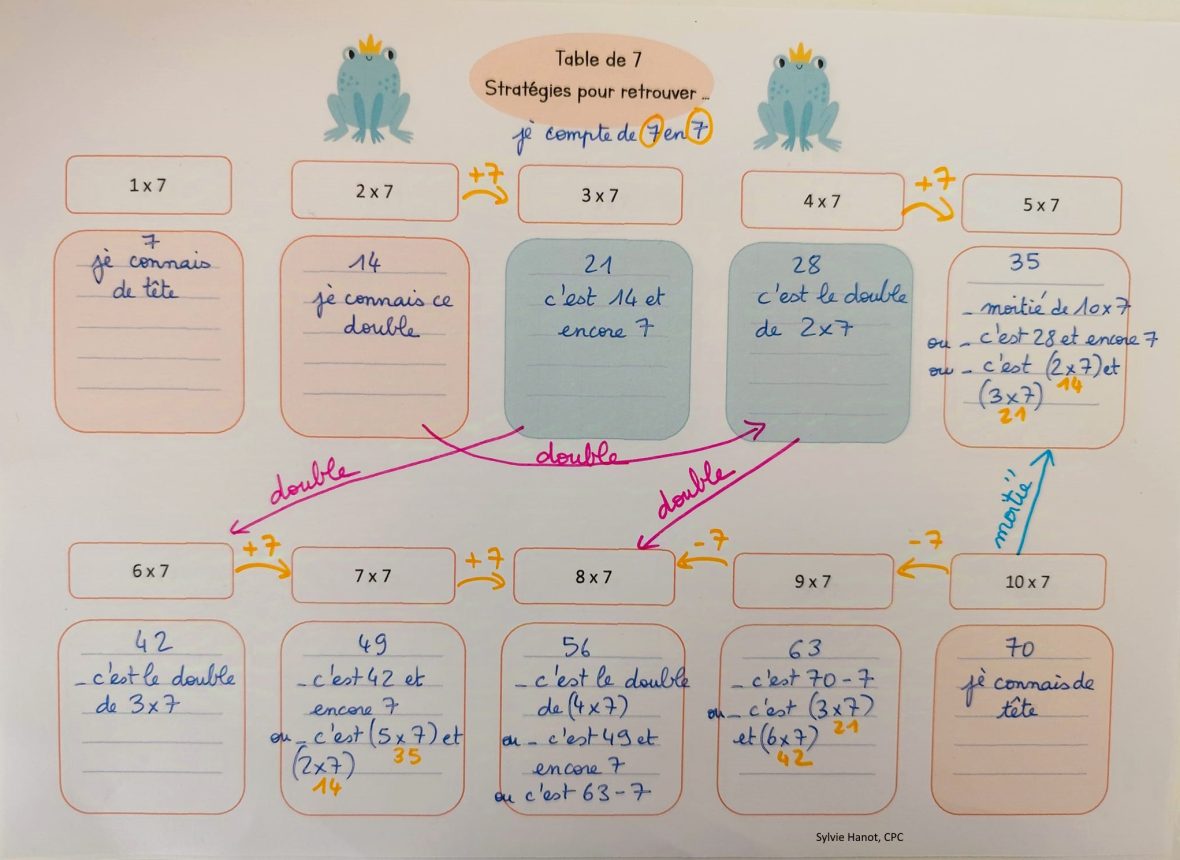 Table de 7
Stratégies pour retrouver ...
je compte de 7 en 7
1 x 7
2 x 7
+7
3 x 7
4 x 7
+7
5 x 7
7
je connais
de tête
14
je connais ce
double
21
c'est 14 et
encore 7
28
c'est le double
de 2x7
35
- moitié de 10x7
ou - c'est 28 et encore 7
ou - c'est (2x7) et
14
(3x7)
21
double
double
double
moitié
6 x 7
+7
7 x 7
+7
8 x 7
-7
9 x 7
-7
10 x 7
42
- c'est le double
de 3x7
49
- c'est 42 et
encore 7
ou - c'est (5x7) et
35
(2x7)
14
56
- c'est le double
de (4x7)
ou - c'est 49 et
encore 7
ou c'est 63-7
63
- c'est 70-7
ou - c'est (3x7)
21
et (6x7)
42
70
je connais de
tête
Sylvie Hanot, CPC